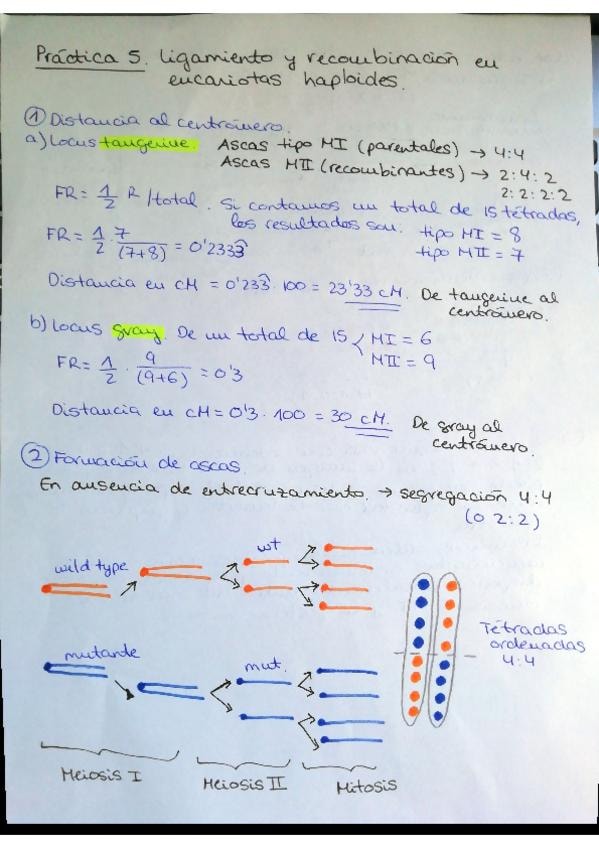 Práctica 5. Ligamiento y recombinación en
eucariotas haploides.
① Distancia al centrómero.
a) Locus tangerine. Ascas tipo MI (parentales) → 4:4
Ascas MII (recombinantes) → 2:4:2
2:2:2:2
FR = 1/2 R/total. Si contamos un total de 15 tétradas,
los resultados son: tipo MI = 8
tipo MII = 7
FR = 1/2 · 7/(7+8) = 0'2333
Distancia en cM = 0'233 · 100 = 23'33 cM. De tangerine al
centrómero.
b) Locus gray. De un total de 15 < MI = 6
MII = 9
FR = 1/2 · 9/(9+6) = 0'3
Distancia en cM = 0'3 · 100 = 30 cM. De gray al
centrómero.
② Formación de ascas.
En ausencia de entrecruzamiento. → segregación 4:4
(o 2:2)
wt
wild type
Tétradas
ordenadas
4:4
mutante
mut.
Meiosis I
Meiosis II
Mitosis